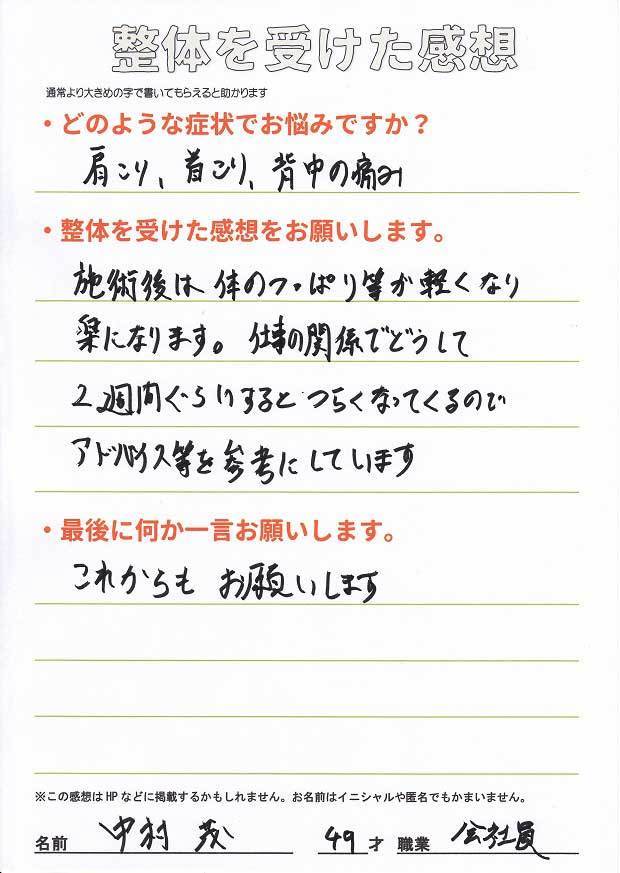 整体を受けた感想
通常より大きめの字で書いてもらえると助かります
・どのような症状でお悩みですか？
肩こり、首こり、背中の痛み
・整体を受けた感想をお願いします。
施術後は体のつっぱり等が軽くなり
楽になります。仕事の関係でどうして
2週間ぐらいするとつらくなってくるので
アドバイス等を参考にしています
・最後に何か一言お願いします。
これからもお願いします
※この感想はHPなどに掲載するかもしれません。お名前はイニシャルや匿名でもかまいません。
名前 中村 茂 49才 職業 会社員